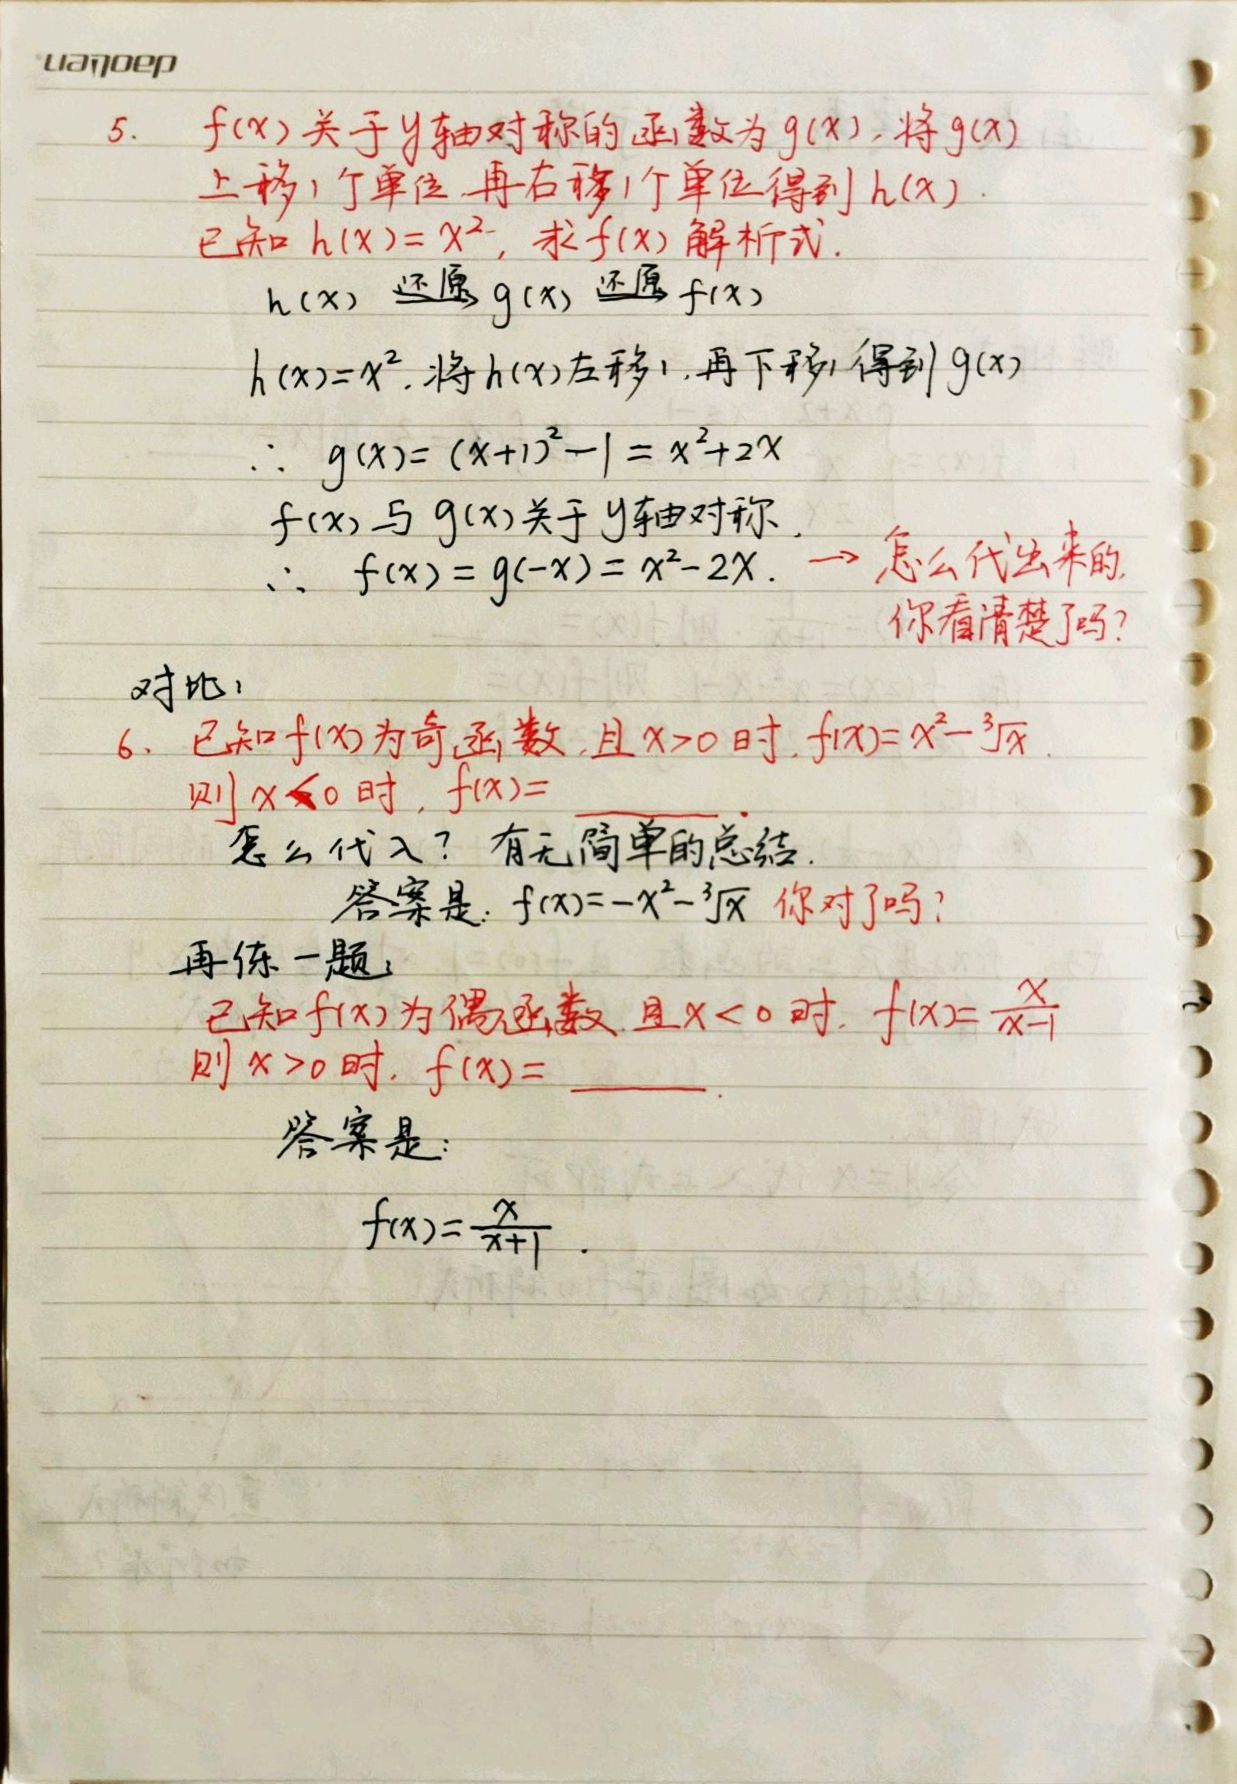 5. f(x)关于y轴对称的函数为g(x),将g(x)
上移1个单位,再右移1个单位得到h(x).
已知h(x)=x²,求f(x)解析式.
h(x) 还原 g(x) 还原 f(x)
h(x)=x².将h(x)左移1.再下移1得到g(x)
∴ g(x)=(x+1)²-1=x²+2x
f(x)与g(x)关于y轴对称.
∴ f(x)=g(-x)=x²-2x. → 怎么代出来的,
你看清楚了吗?
对比:
6. 已知f(x)为奇函数,且x>0时,f(x)=x²-³√x.
则x<0时,f(x)=______.
怎么代入?有无简单的总结.
答案是:f(x)=-x²-³√x 你对了吗?
再练一题:
已知f(x)为偶函数,且x<0时,f(x)=x/(x-1)
则x>0时,f(x)=______.
答案是:
f(x)=x/(x+1).